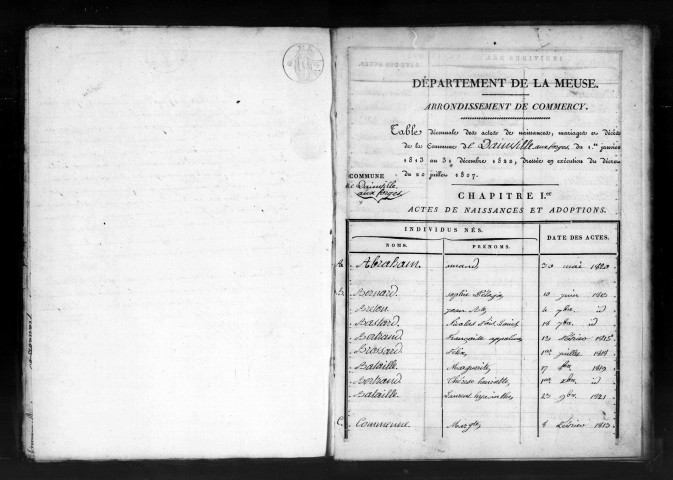 DÉPARTEMENT DE LA MEUSE.
ARRONDISSEMENT DE COMMERCY.
Table décennale des actes de naissances, mariages et décès
de la Commune de Dainville aux forges, du 1.er janvier
1813 au 31 décembre 1822, dressée en exécution du décret
du 20 juillet 1807.
COMMUNE
de Dainville
aux forges
CHAPITRE I.er
ACTES DE NAISSANCES ET ADOPTIONS.
INDIVIDUS NÉS. DATE DES ACTES.
NOMS. PRÉNOMS.
A. Abraham. 30 mai 1820
B. Bernard. 10 juin
Brison. 7bre id
Bastard. Nicolas 18 7bre id
Bertrand Françoise 1815
Brossard Félix 1er juillet 1818
Bataille. Marguerite 17 1819
Bertrand Thérèse 1er id
Bataille. Laurent 23 9bre 1821
C. Commenne Margte 8 février 1813